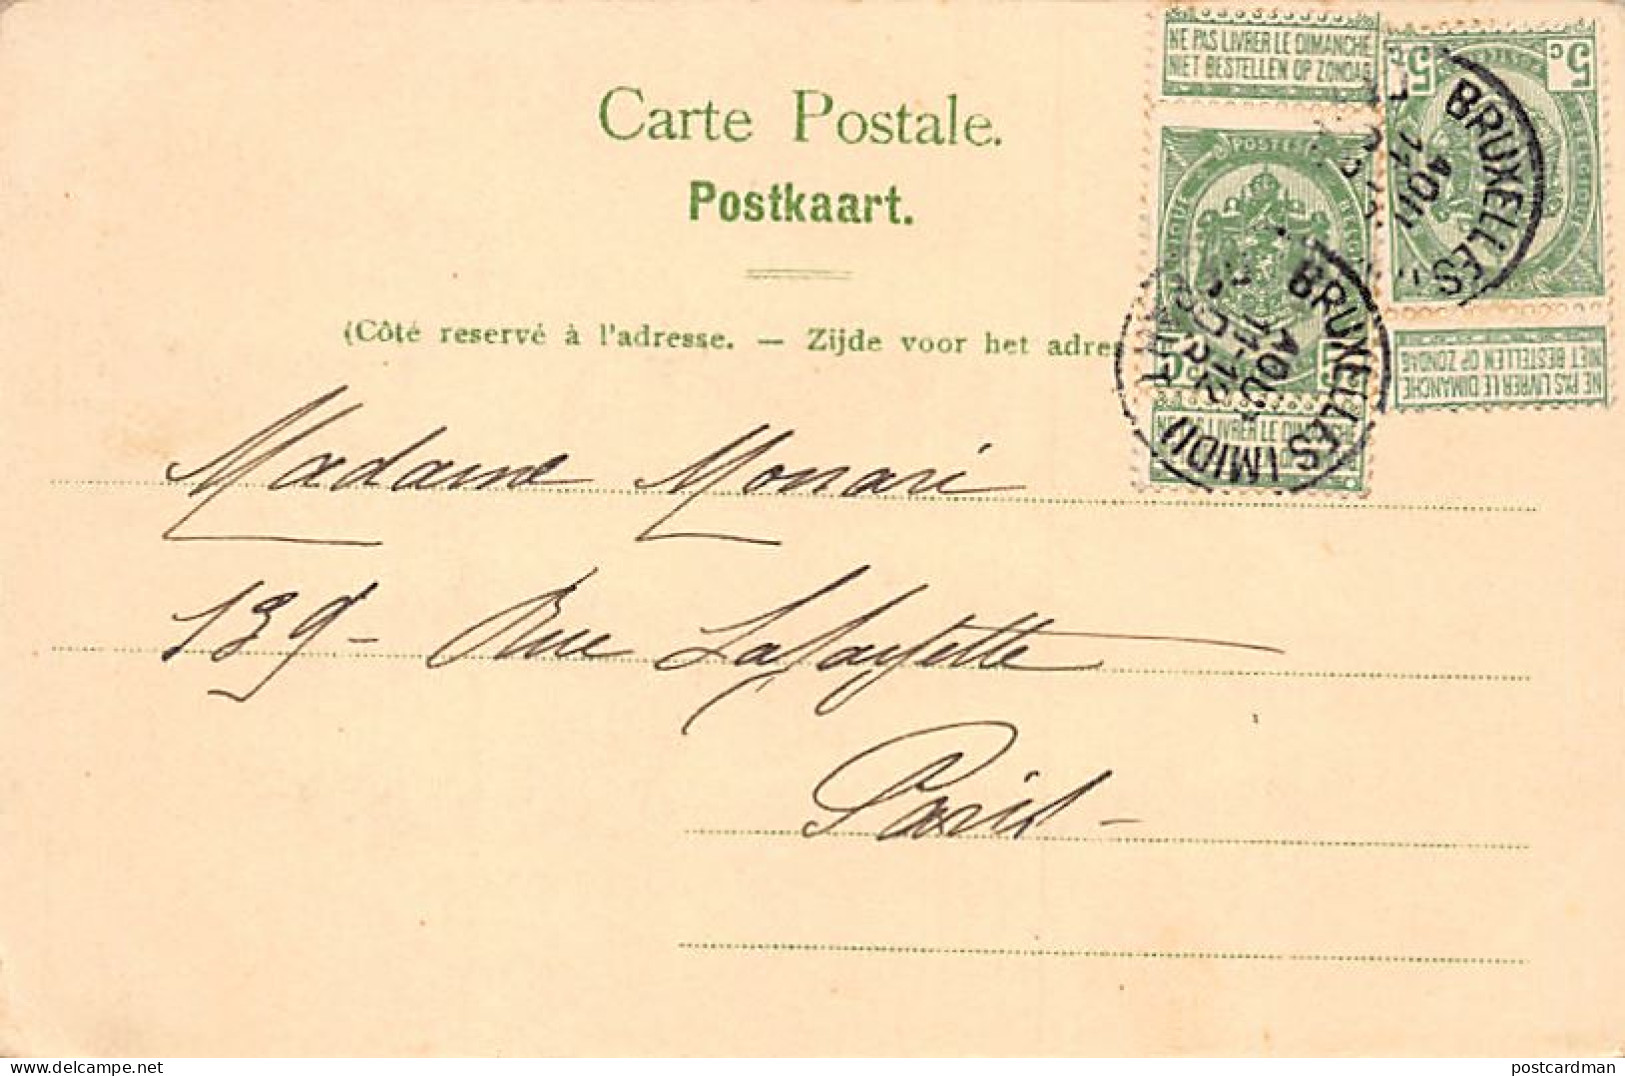 NE PAS LIVRER LE DIMANCHE
NIET BESTELLEN OP ZONDAG
5c 5c
POSTES
BELGIQUE
Carte Postale.
Postkaart.
(Côté reservé à l'adresse. — Zijde voor het adres
BRUXELLES
17
AOU
BRUXELLES (MIDI)
11-12
AOUT
DEPART
NE PAS LIVRER LE DIMANCHE
NE PAS LIVRER LE DIMANCHE
NIET BESTELLEN OP ZONDAG
Madame Monari
139 - Rue Lafayette
Paris -
postcardman